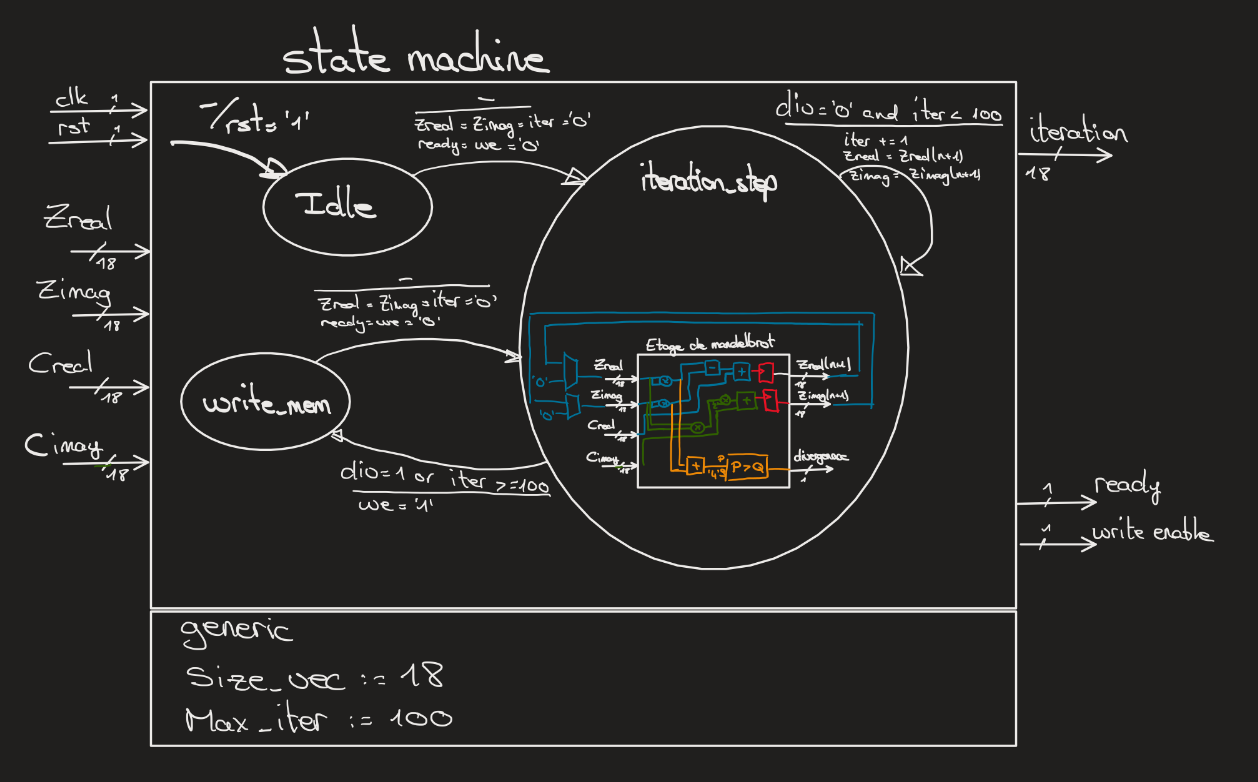 state machine
clk 1
rst 1
Zreal
18
Zimag
18
Creal
18
Cimag
18
-/rst='1'
Idle
-
Zreal = Zimag = iter = '0'
ready = we = '0'
iteration_step
div = '0' and iter < 100
iter += 1
Zreal = Zreal(n+1)
Zimag = Zimag(n+1)
iteration
18
-
Zreal = Zimag = iter = '0'
ready = we = '0'
write_mem
div = 1 or iter >= 100
we = '1'
Etage de mandelbrot
'0'
'0'
Zreal
18
Zimag
18
Creal
18
Cimag
18
x
x
-
+
x
+
x
+
P
'4'
Q
P>Q
Zreal(n+1)
18
Zimag(n+1)
18
divergence
1
ready
1
write enable
1
generic
Size_vec := 18
Max_iter := 100